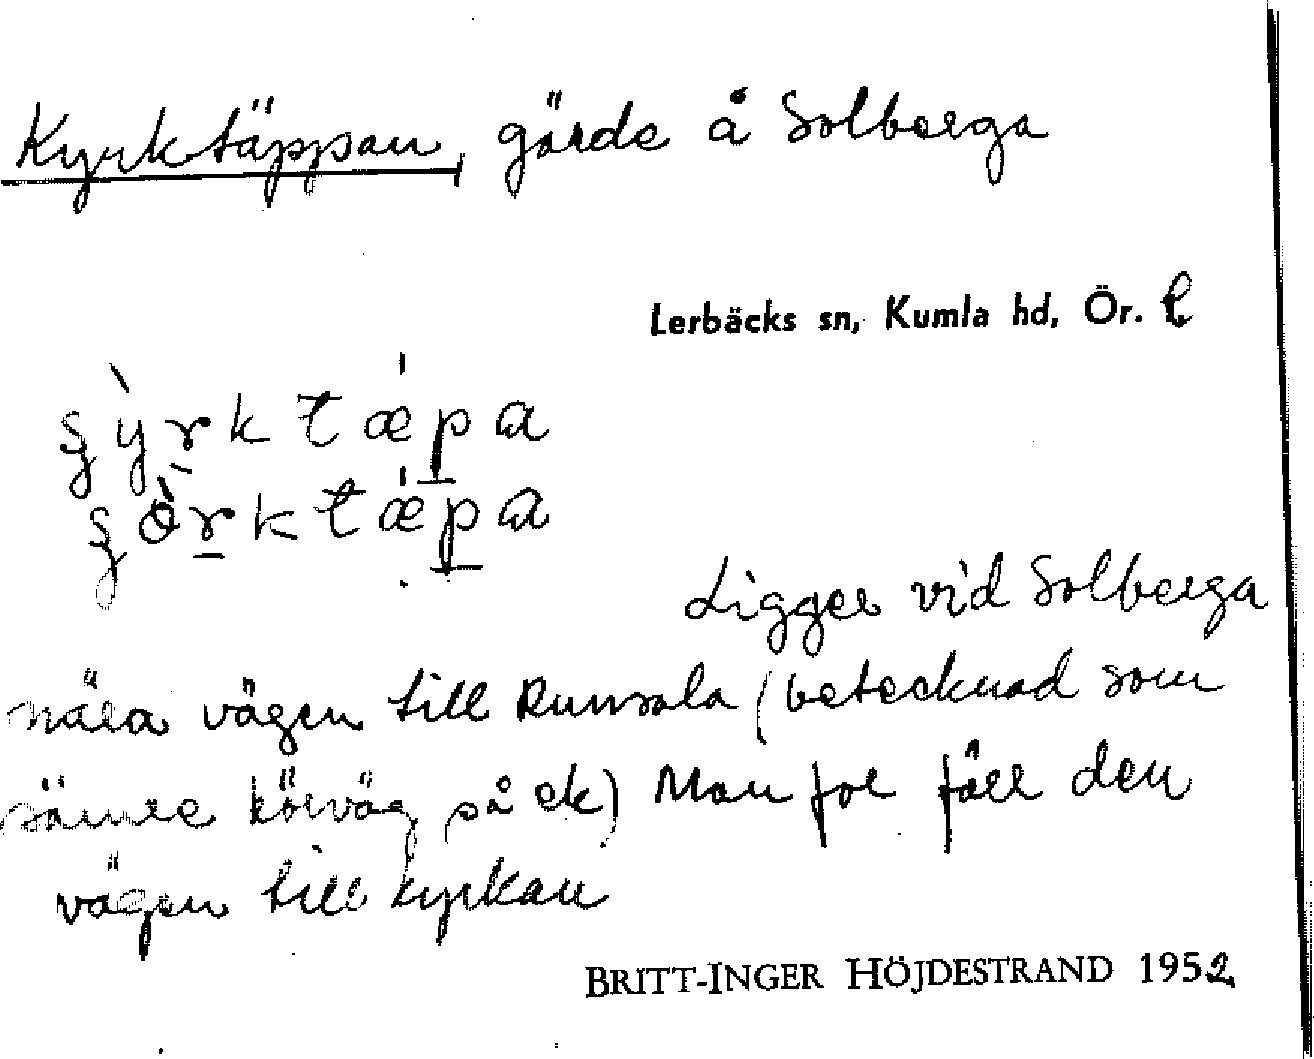 Kyrktäppan, gärde å Solberga
Lerbäcks sn, Kumla hd, Ör. l
şỳrktǽpa
şörktǽpa
Ligger vid Solberga
nära vägen till Runsala (betecknad som
sämre körväg på ek) Man for förr den
vägen till kyrkan
BRITT-INGER HÖJDESTRAND 1952